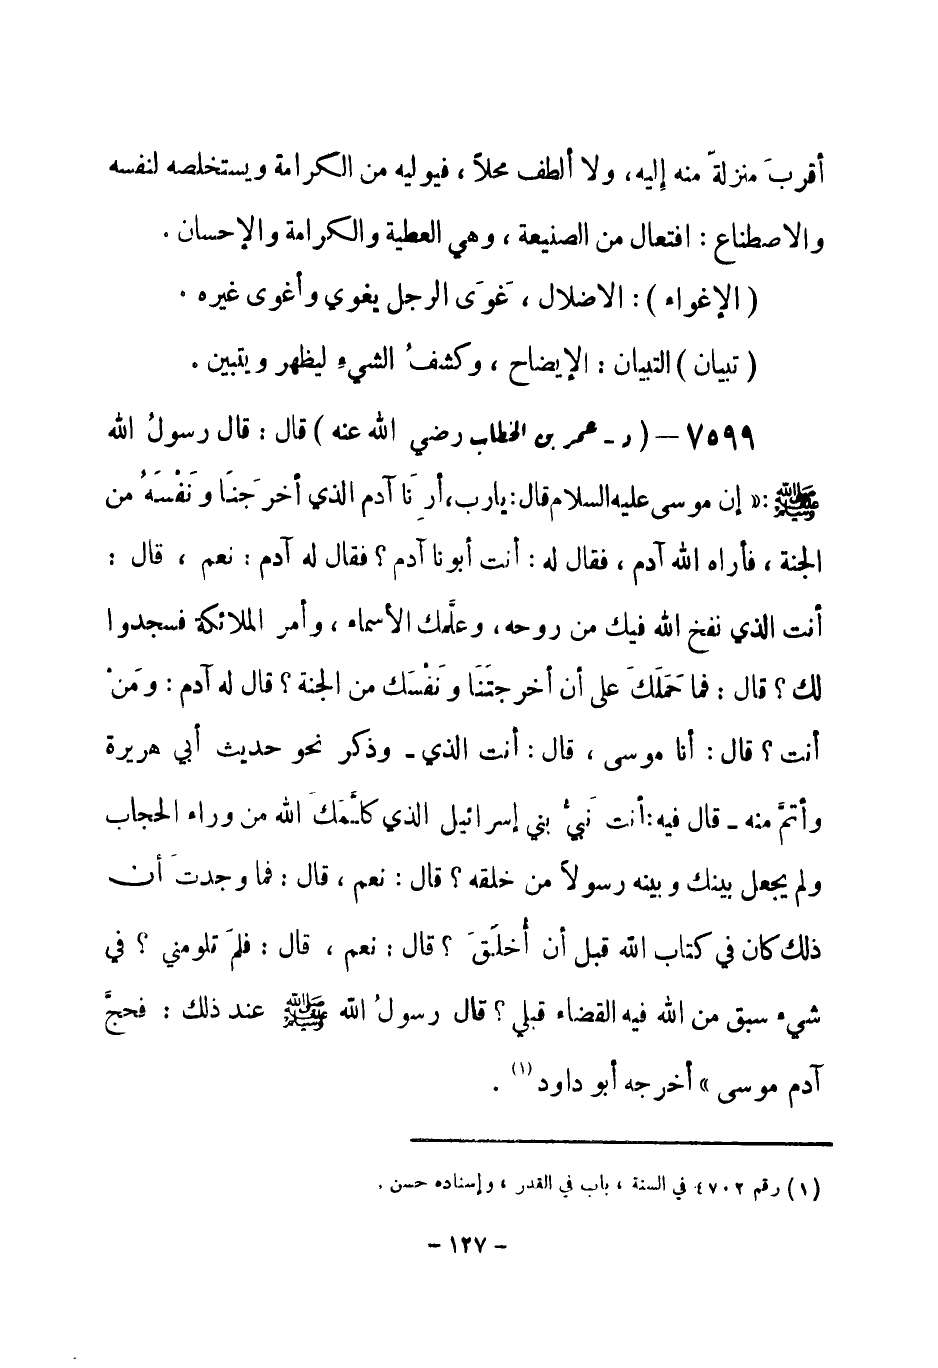 أقربَ منزلةً منه إليه، ولا ألطف محلاً ، فيوليه من الكرامة ويستخلصه لنفسه
والاصطناع : افتعال من الصنيعة ، وهي العطية والكرامة والإحسان .
( الإغواء ) : الاضلال ، غَوَى الرجل يغوي وأغوى غيره .
( تبيان ) التبيان : الإيضاح ، وكشفُ الشيء ليظهر ويتبين .
٧٥٩٩ – ( د ـ عمر بن الخطاب رضي الله عنه ) قال : قال رسولُ الله
ﷺ :« إن موسى عليه السلام قال: يارب، أرِنا آدم الذي أخرجَنَا ونَفْسَهُ من
الجنة ، فأراه الله آدم ، فقال له : أنت أبونا آدم ؟ فقال له آدم : نعم ، قال :
أنت الذي نفخ الله فيك من روحه، وعلَّمك الأسماء ، وأمر الملائكة فسجدوا
لك ؟ قال : فما حَمَلَكَ على أن أخرجتَنَا ونَفْسَك من الجنة ؟ قال له آدم : ومَنْ
أنت ؟ قال : أنا موسى ، قال : أنت الذي ـ وذكر نحو حديث أبي هريرة
وأتمَّ منه ـ قال فيه: أنت نَبيُّ بني إسرائيل الذي كلَّمَكَ الله من وراء الحجاب
ولم يجعل بينك وبينه رسولاً من خلقه ؟ قال : نعم ، قال : فما وجدتَ أن
ذلك كان في كتاب الله قبل أن أُخلَقَ ؟ قال : نعم ، قال : فلمَ تلومني ؟ في
شيء سبق من الله فيه القضاء قبلي ؟ قال رسولُ الله ﷺ عند ذلك : فحجَّ
آدم موسى » أخرجه أبو داود (١) .
(١) رقم ٤٧٠٢ في السنة ، باب في القدر ، وإسناده حسن .
– ١٢٧ –